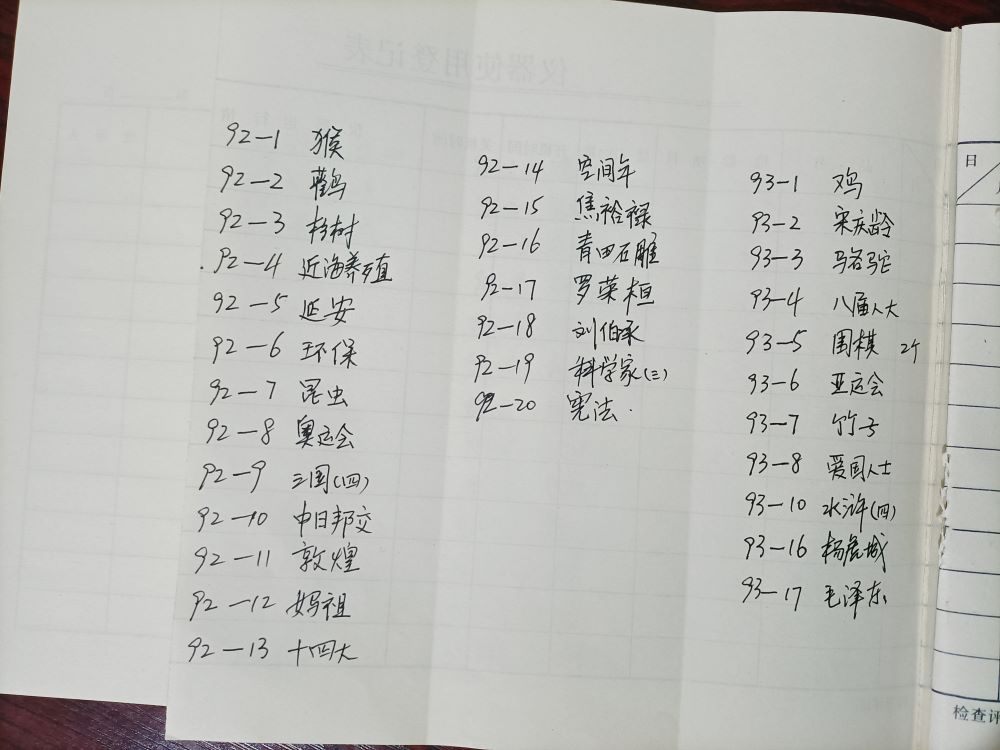 仪器使用登记表
92-1 猴
92-2 鹳
92-3 杉树
92-4 近海养殖
92-5 延安
92-6 环保
92-7 昆虫
92-8 奥运会
92-9 三国(四)
92-10 中日邦交
92-11 敦煌
92-12 妈祖
92-13 十四大
92-14 空间年
92-15 焦裕禄
92-16 青田石雕
92-17 罗荣桓
92-18 刘伯承
92-19 科学家(三)
92-20 宪法.
93-1 鸡
93-2 宋庆龄
93-3 骆驼
93-4 八届人大
93-5 围棋 2个
93-6 亚运会
93-7 竹子
93-8 爱国人士
93-10 水浒(四)
93-16 杨虎城
93-17 毛泽东
日
检查评